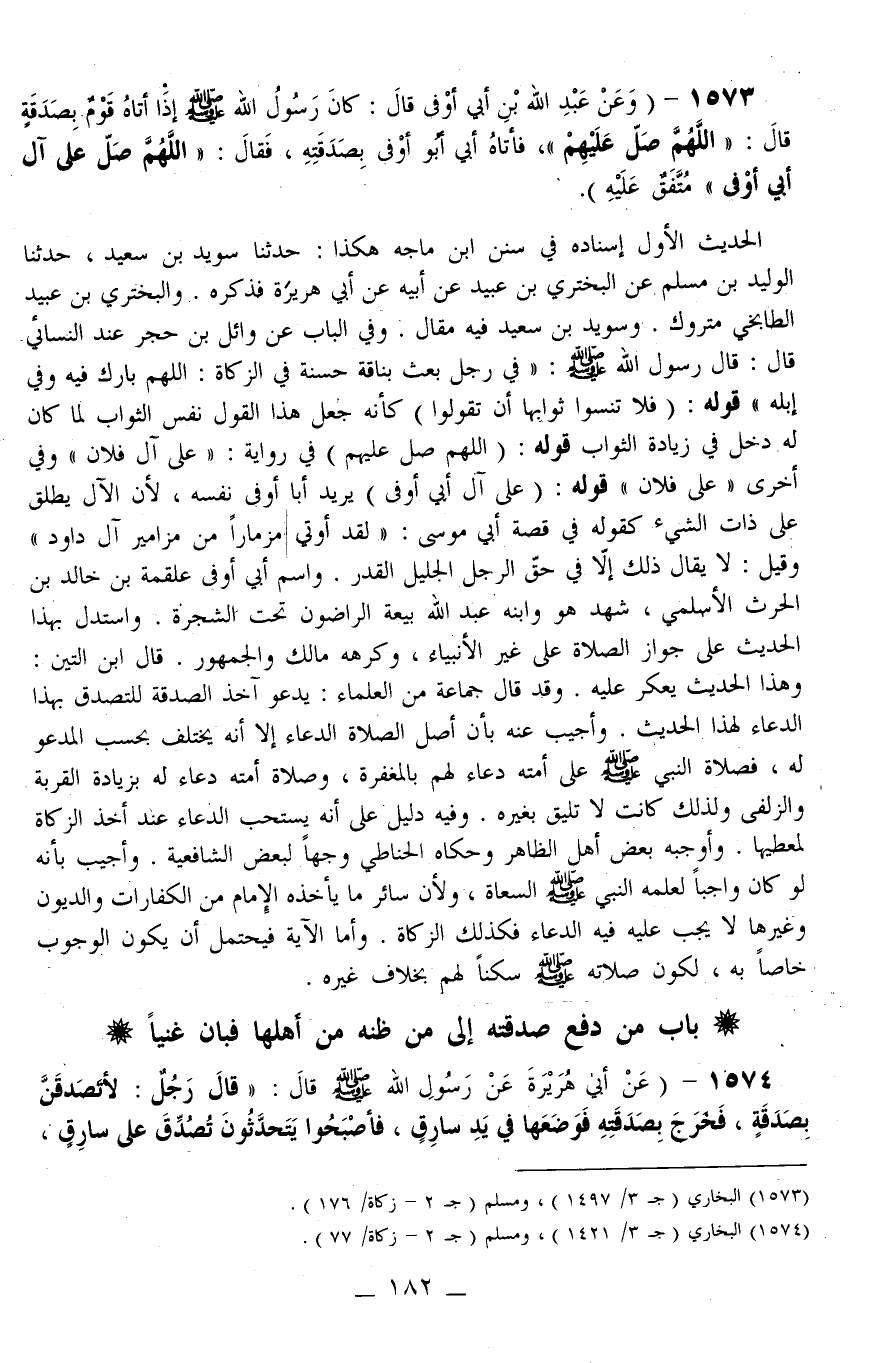 ١٥٧٣ – ( وَعَنْ عَبْدِ الله بْنِ أبي أوْفى قالَ : كانَ رَسُولُ الله ﷺ إذَا أتاهُ قَوْمٌ بِصَدَقَةٍ
قالَ : « اللَّهُمَّ صَلّ عَلَيْهِمْ »، فأتاهُ أبي أبُو أوْفى بِصَدَقَتِهِ ، فَقالَ : « اللَّهُمَّ صَلّ على آل
أبي أوْفى » مُتَّفَقٌ عَلَيْهِ ).
الحديث الأول إسناده في سنن ابن ماجه هكذا : حدثنا سويد بن سعيد ، حدثنا
الوليد بن مسلم عن البختري بن عبيد عن أبيه عن أبي هريرة فذكره . والبختري بن عبيد
الطابخي متروك . وسويد بن سعيد فيه مقال . وفي الباب عن وائل بن حجر عند النسائي
قال : قال رسول الله ﷺ : « في رجل بعث بناقة حسنة في الزكاة : اللهم بارك فيه وفي
إبله » قوله : ( فلا تنسوا ثوابها أن تقولوا ) كأنه جعل هذا القول نفس الثواب لما كان
له دخل في زيادة الثواب قوله : ( اللهم صل عليهم ) في رواية : « على آل فلان » وفي
أخرى « على فلان » قوله : ( على آل أبي أوفى ) يريد أبا أوفى نفسه ، لأن الآل يطلق
على ذات الشيء كقوله في قصة أبي موسى : « لقد أوتي مزماراً من مزامير آل داود »
وقيل : لا يقال ذلك إلّا في حقّ الرجل الجليل القدر . واسم أبي أوفى علقمة بن خالد بن
الحرث الأسلمي ، شهد هو وابنه عبد الله بيعة الراضون تحت الشجرة . واستدل بهذا
الحديث على جواز الصلاة على غير الأنبياء ، وكرهه مالك والجمهور . قال ابن التين :
وهذا الحديث يعكر عليه . وقد قال جماعة من العلماء : يدعو آخذ الصدقة للتصدق بهذا
الدعاء لهذا الحديث . وأجيب عنه بأن أصل الصلاة الدعاء إلا أنه يختلف بحسب المدعو
له ، فصلاة النبي ﷺ على أمته دعاء لهم بالمغفرة ، وصلاة أمته دعاء له بزيادة القربة
والزلفى ولذلك كانت لا تليق بغيره . وفيه دليل على أنه يستحب الدعاء عند أخذ الزكاة
لمعطيها . وأوجبه بعض أهل الظاهر وحكاه الحناطي وجهاً لبعض الشافعية . وأجيب بأنه
لو كان واجباً لعلمه النبي ﷺ السعاة ، ولأن سائر ما يأخذه الإمام من الكفارات والديون
وغيرها لا يجب عليه فيه الدعاء فكذلك الزكاة . وأما الآية فيحتمل أن يكون الوجوب
خاصاً به ، لكون صلاته ﷺ سكناً لهم بخلاف غيره .
باب من دفع صدقته إلى من ظنه من أهلها فبان غنياً
١٥٧٤ – ( عَنْ أبي هُرَيْرَةَ عَنْ رَسُولِ الله ﷺ قالَ : « قالَ رَجُلٌ : لأتَصَدقَنَّ
بِصَدَقَةٍ ، فَخَرَجَ بِصَدَقَتِهِ فَوَضَعَها في يَدِ سارِقٍ ، فأصْبَحُوا يَتَحدَّثُونَ تُصُدِّقَ على سارِقٍ ،
(١٥٧٣) البخاري ( جـ ٣/ ١٤٩٧ ) ، ومسلم ( جـ ٢ – زكاة/ ١٧٦ ) .
(١٥٧٤) البخاري ( جـ ٣/ ١٤٢١ ) ، ومسلم ( جـ ٢ – زكاة/ ٧٧ ) .
– ١٨٢ –